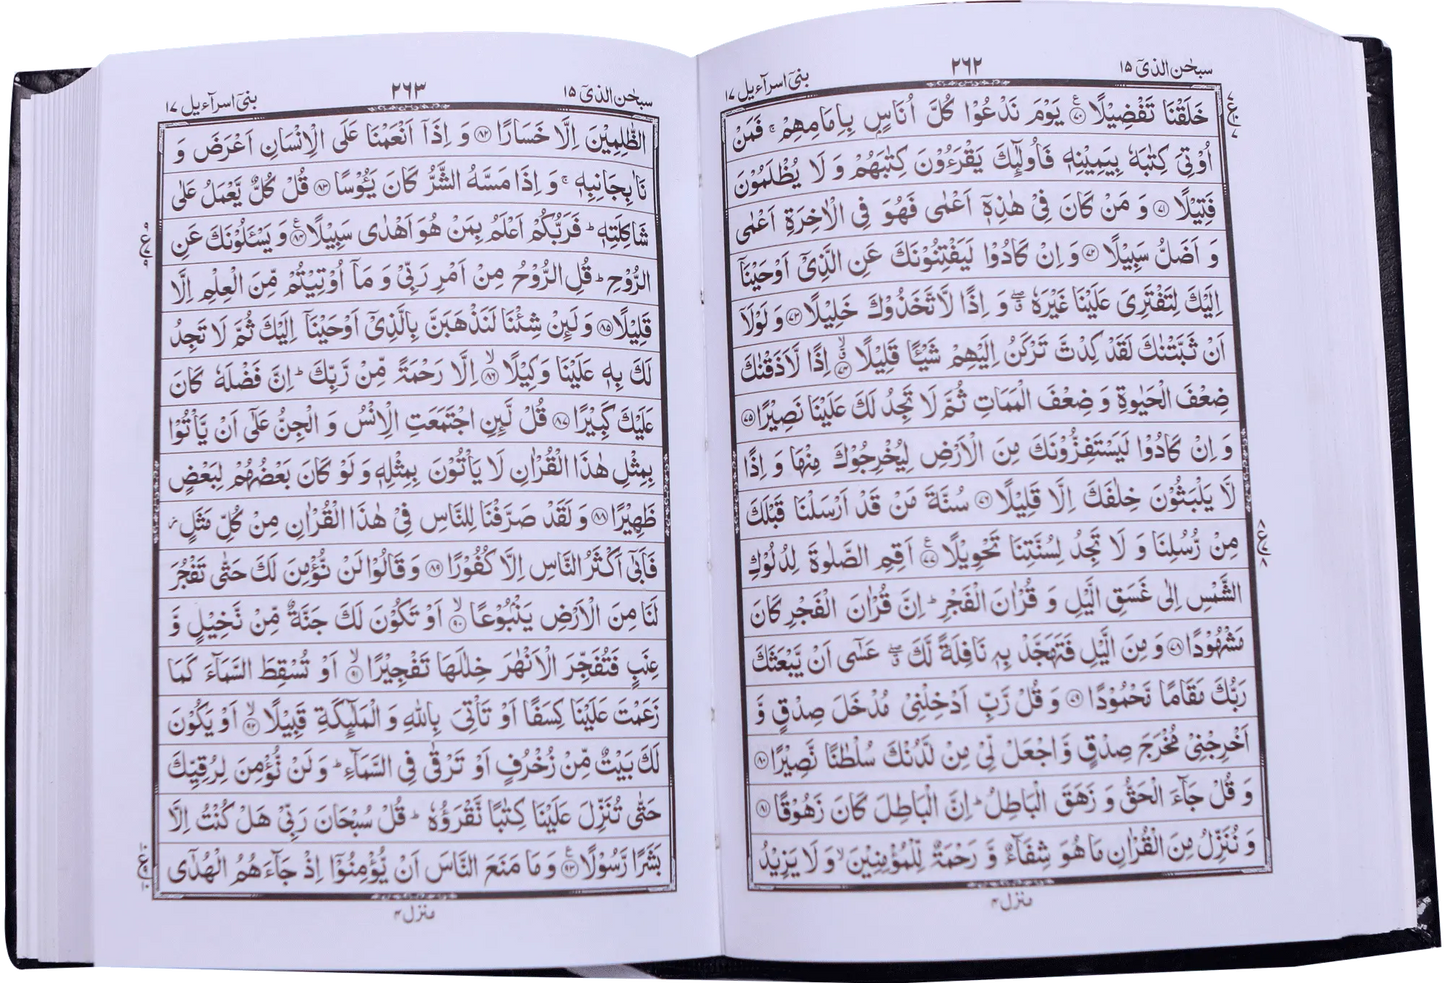 سبحٰن الذیٓ ۱۵
۲۶۲
بنیٓ اسرآءیل ۱۷
خَلَقْنَا تَفْضِيْلًا ۷۰ يَوْمَ نَدْعُوْا كُلَّ اُنَاسٍۭ بِاِمَامِهِمْ ۚ فَمَنْ
اُوْتِيَ كِتٰبَهٗ بِيَمِيْنِهٖ فَاُولٰٓئِكَ يَقْرَءُوْنَ كِتٰبَهُمْ وَ لَا يُظْلَمُوْنَ
فَتِيْلًا ۷۱ وَ مَنْ كَانَ فِيْ هٰذِهٖٓ اَعْمٰى فَهُوَ فِي الْاٰخِرَةِ اَعْمٰى
وَ اَضَلُّ سَبِيْلًا ۷۲ وَ اِنْ كَادُوْا لَيَفْتِنُوْنَكَ عَنِ الَّذِيْٓ اَوْحَيْنَآ
اِلَيْكَ لِتَفْتَرِيَ عَلَيْنَا غَيْرَهٗ ۖ وَ اِذًا لَّاتَّخَذُوْكَ خَلِيْلًا ۷۳ وَ لَوْلَآ
اَنْ ثَبَّتْنٰكَ لَقَدْ كِدْتَّ تَرْكَنُ اِلَيْهِمْ شَيْـًٔا قَلِيْلًا ۷۴ اِذًا لَّاَذَقْنٰكَ
ضِعْفَ الْحَيٰوةِ وَ ضِعْفَ الْمَمَاتِ ثُمَّ لَا تَجِدُ لَكَ عَلَيْنَا نَصِيْرًا ۷۵
وَ اِنْ كَادُوْا لَيَسْتَفِزُّوْنَكَ مِنَ الْاَرْضِ لِيُخْرِجُوْكَ مِنْهَا وَ اِذًا
لَّا يَلْبَثُوْنَ خِلٰفَكَ اِلَّا قَلِيْلًا ۷۶ سُنَّةَ مَنْ قَدْ اَرْسَلْنَا قَبْلَكَ
مِنْ رُّسُلِنَا وَ لَا تَجِدُ لِسُنَّتِنَا تَحْوِيْلًا ۷۷ اَقِمِ الصَّلٰوةَ لِدُلُوْكِ
الشَّمْسِ اِلٰى غَسَقِ الَّيْلِ وَ قُرْاٰنَ الْفَجْرِ ؕ اِنَّ قُرْاٰنَ الْفَجْرِ كَانَ
مَشْهُوْدًا ۷۸ وَ مِنَ الَّيْلِ فَتَهَجَّدْ بِهٖ نَافِلَةً لَّكَ ۖ عَسٰٓى اَنْ يَّبْعَثَكَ
رَبُّكَ مَقَامًا مَّحْمُوْدًا ۷۹ وَ قُلْ رَّبِّ اَدْخِلْنِيْ مُدْخَلَ صِدْقٍ وَّ
اَخْرِجْنِيْ مُخْرَجَ صِدْقٍ وَّ اجْعَلْ لِّيْ مِنْ لَّدُنْكَ سُلْطٰنًا نَّصِيْرًا ۸۰
وَ قُلْ جَآءَ الْحَقُّ وَ زَهَقَ الْبَاطِلُ ؕ اِنَّ الْبَاطِلَ كَانَ زَهُوْقًا ۸۱
وَ نُنَزِّلُ مِنَ الْقُرْاٰنِ مَا هُوَ شِفَآءٌ وَّ رَحْمَةٌ لِّلْمُؤْمِنِيْنَ ۙ وَ لَا يَزِيْدُ
منزل ۴
سبحٰن الذیٓ ۱۵
۲۶۳
بنیٓ اسرآءیل ۱۷
الظّٰلِمِيْنَ اِلَّا خَسَارًا ۸۲ وَ اِذَآ اَنْعَمْنَا عَلَى الْاِنْسَانِ اَعْرَضَ وَ
نَاٰ بِجَانِبِهٖ ۚ وَ اِذَا مَسَّهُ الشَّرُّ كَانَ يَـُٔوْسًا ۸۳ قُلْ كُلٌّ يَّعْمَلُ عَلٰى
شَاكِلَتِهٖ ؕ فَرَبُّكُمْ اَعْلَمُ بِمَنْ هُوَ اَهْدٰى سَبِيْلًا ۸۴ وَ يَسْـَٔلُوْنَكَ عَنِ
الرُّوْحِ ؕ قُلِ الرُّوْحُ مِنْ اَمْرِ رَبِّيْ وَ مَآ اُوْتِيْتُمْ مِّنَ الْعِلْمِ اِلَّا
قَلِيْلًا ۸۵ وَ لَئِنْ شِئْنَا لَنَذْهَبَنَّ بِالَّذِيْٓ اَوْحَيْنَآ اِلَيْكَ ثُمَّ لَا تَجِدُ
لَكَ بِهٖ عَلَيْنَا وَكِيْلًا ۸۶ اِلَّا رَحْمَةً مِّنْ رَّبِّكَ ؕ اِنَّ فَضْلَهٗ كَانَ
عَلَيْكَ كَبِيْرًا ۸۷ قُلْ لَّئِنِ اجْتَمَعَتِ الْاِنْسُ وَ الْجِنُّ عَلٰٓى اَنْ يَّاْتُوْا
بِمِثْلِ هٰذَا الْقُرْاٰنِ لَا يَاْتُوْنَ بِمِثْلِهٖ وَ لَوْ كَانَ بَعْضُهُمْ لِبَعْضٍ
ظَهِيْرًا ۸۸ وَ لَقَدْ صَرَّفْنَا لِلنَّاسِ فِيْ هٰذَا الْقُرْاٰنِ مِنْ كُلِّ مَثَلٍ ۫
فَاَبٰٓى اَكْثَرُ النَّاسِ اِلَّا كُفُوْرًا ۸۹ وَ قَالُوْا لَنْ نُّؤْمِنَ لَكَ حَتّٰى تَفْجُرَ
لَنَا مِنَ الْاَرْضِ يَنْۢبُوْعًا ۹۰ اَوْ تَكُوْنَ لَكَ جَنَّةٌ مِّنْ نَّخِيْلٍ وَّ
عِنَبٍ فَتُفَجِّرَ الْاَنْهٰرَ خِلٰلَهَا تَفْجِيْرًا ۹۱ اَوْ تُسْقِطَ السَّمَآءَ كَمَا
زَعَمْتَ عَلَيْنَا كِسَفًا اَوْ تَاْتِيَ بِاللّٰهِ وَ الْمَلٰٓئِكَةِ قَبِيْلًا ۹۲ اَوْ يَكُوْنَ
لَكَ بَيْتٌ مِّنْ زُخْرُفٍ اَوْ تَرْقٰى فِي السَّمَآءِ ؕ وَ لَنْ نُّؤْمِنَ لِرُقِيِّكَ
حَتّٰى تُنَزِّلَ عَلَيْنَا كِتٰبًا نَّقْرَؤُهٗ ؕ قُلْ سُبْحَانَ رَبِّيْ هَلْ كُنْتُ اِلَّا
بَشَرًا رَّسُوْلًا ۹۳ وَ مَا مَنَعَ النَّاسَ اَنْ يُّؤْمِنُوْٓا اِذْ جَآءَهُمُ الْهُدٰٓى
منزل ۴